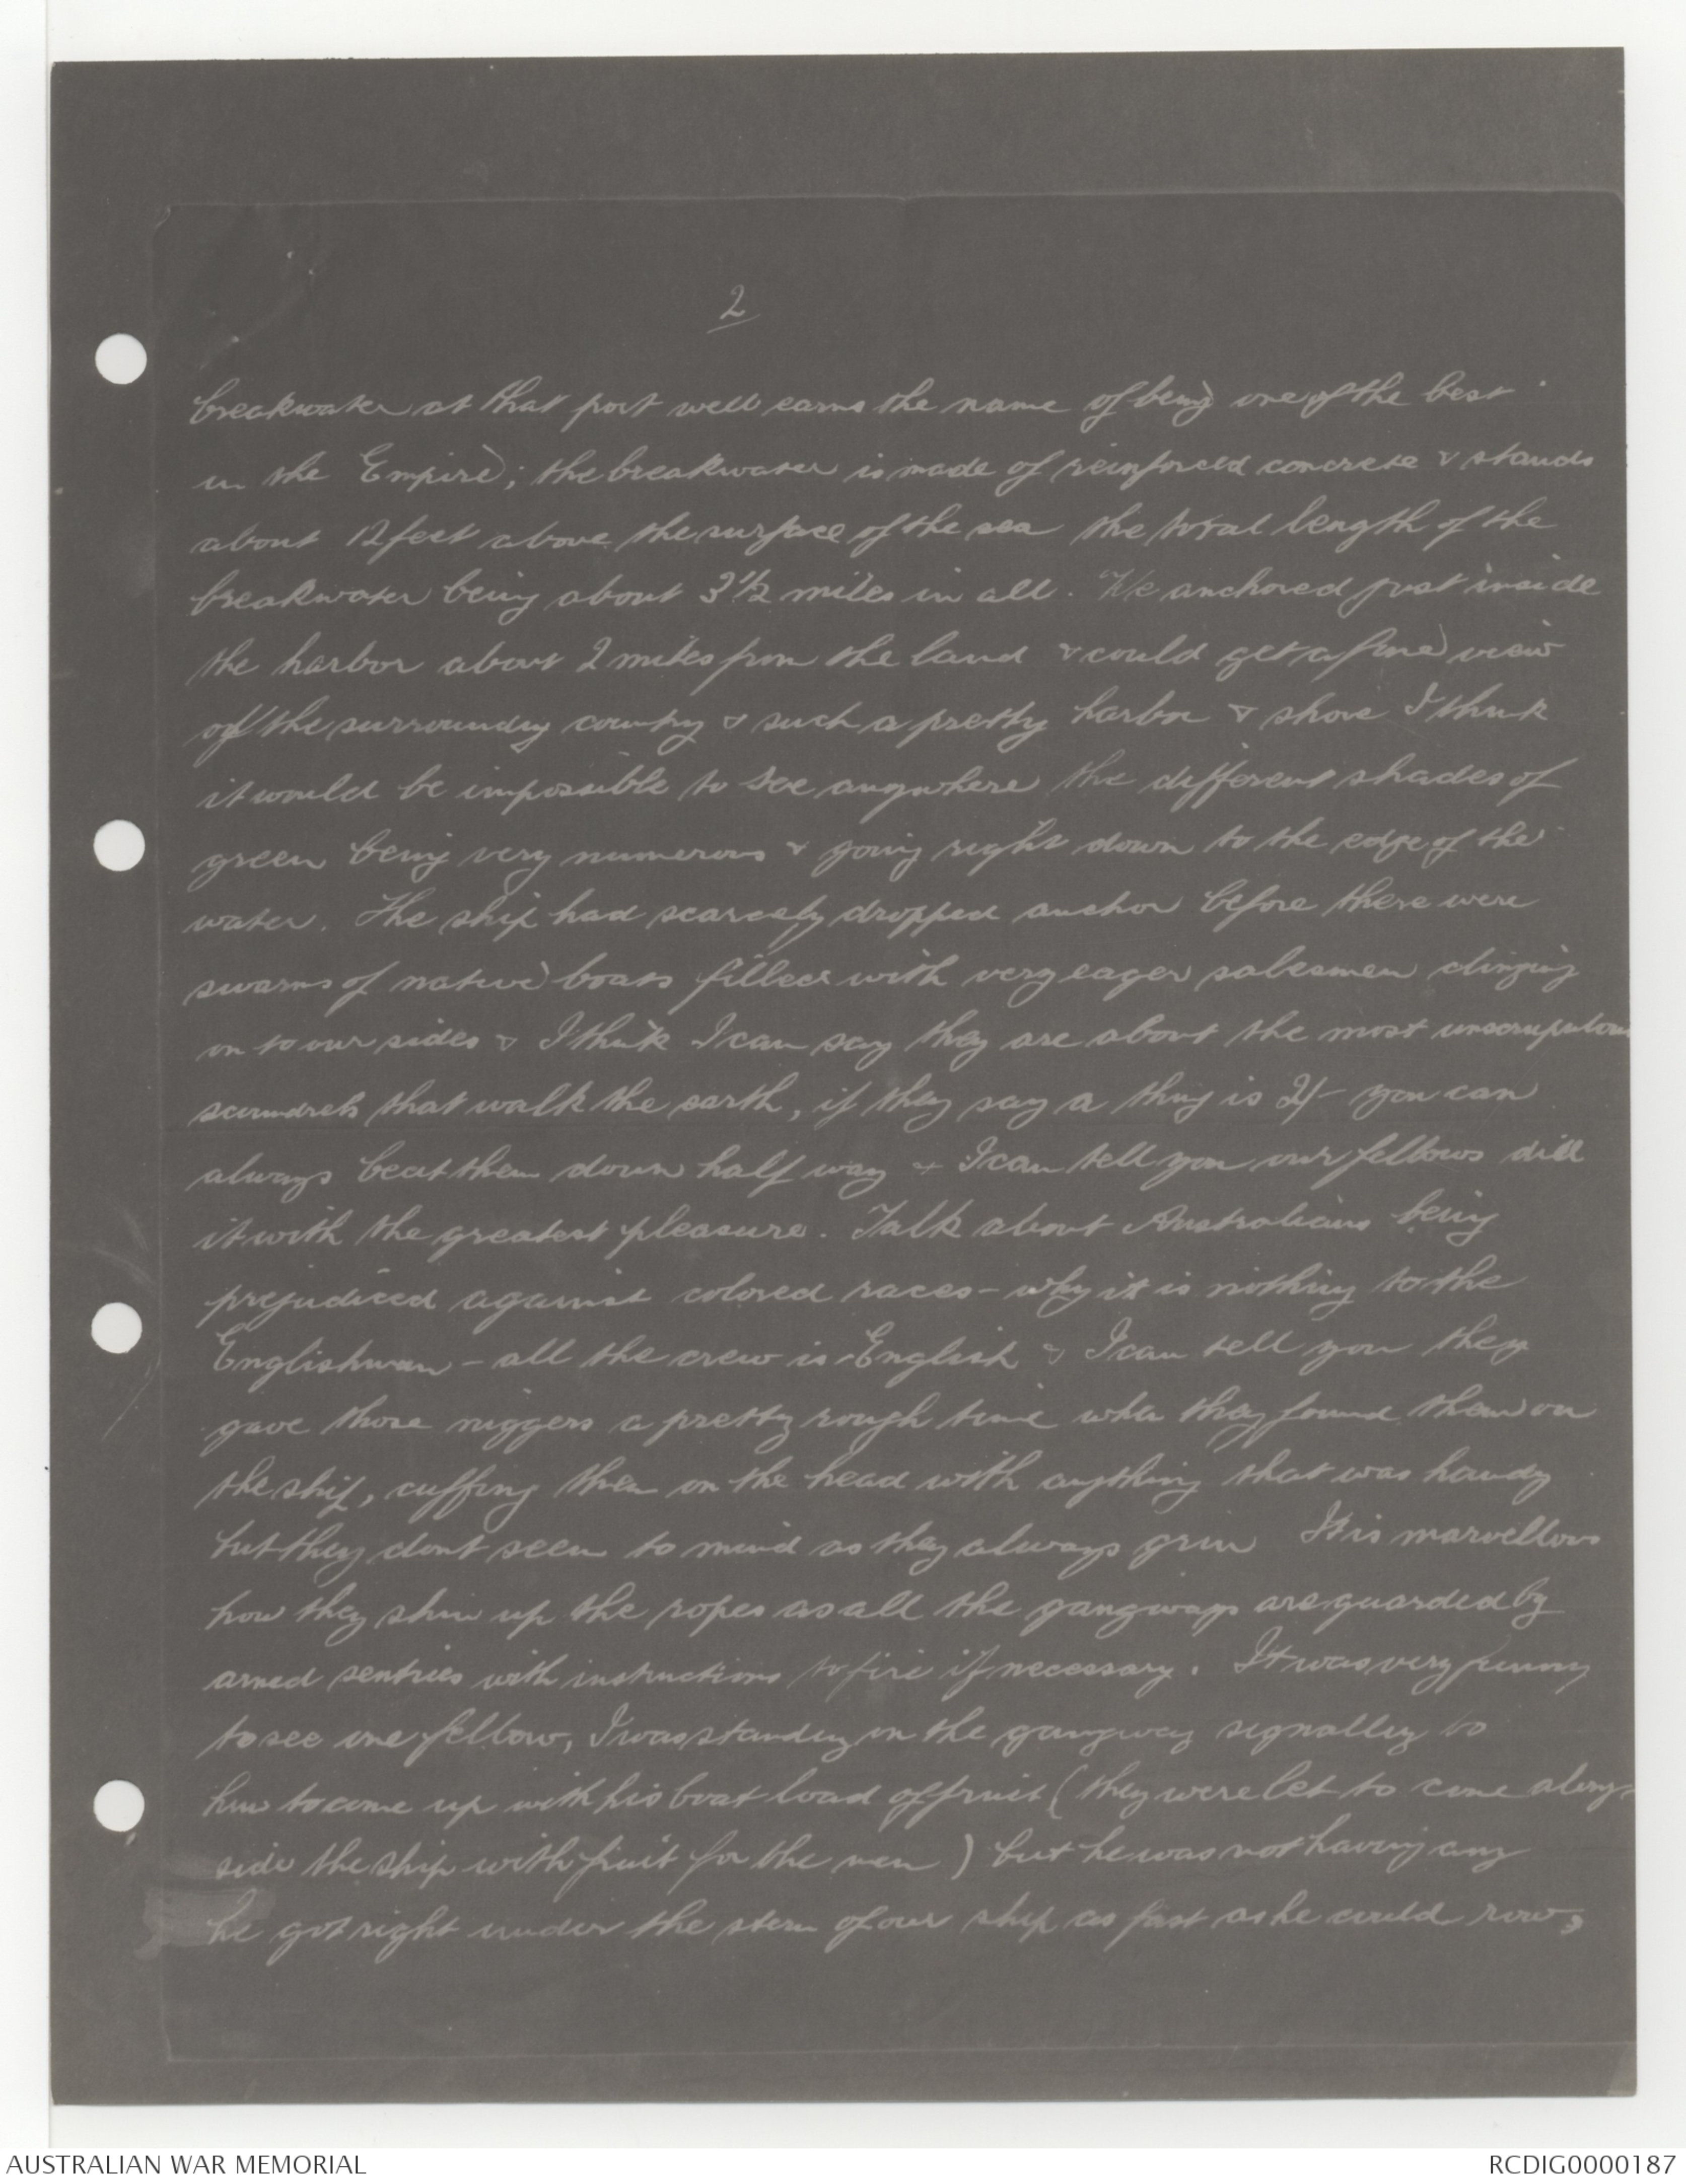 2
breakwater at that port well earns the name of being one of the best
in the Empire; the breakwater is made of reinforced concrete & stands
about 12 feet above the surface of the sea the total length of the
breakwater being about 3½ miles in all. We anchored just inside
the harbor about 2 miles from the land & could get a fine view
of the surrounding country & such a pretty harbor & shore I think
it would be impossible to see anywhere the different shades of
green being very numerous & going right down to the edge of the
water. The ship had scarcely dropped anchor before there were
swarms of native boats filled with very eager salesmen clinging
on to our sides & I think I can say they are about the most unscrupulous
scoundrels that walk the earth, if they say a thing is 2/- you can
always beat them down half way & I can tell you our fellows did
it with the greatest pleasure. Talk about Australians being
prejudiced against colored races - why it is nothing to the
Englishman - all the crew is English & I can tell you they
gave those niggers a pretty rough time when they found them on
the ship, cuffing them on the head with anything that was handy
but they dont seem to mind as they always grin It is marvellous
how they shin up the ropes as all the gangways are guarded by
armed sentries with instructions to fire if necessary. It was very funny
to see one fellow, I was standing on the gangway signalling to
him to come up with his boat load of fruit (they were let to come along-
side the ship with fruit for the men) but he was not having any
he got right under the stern of our ship as fast as he could row,
AUSTRALIAN WAR MEMORIAL
RCDIG0000187